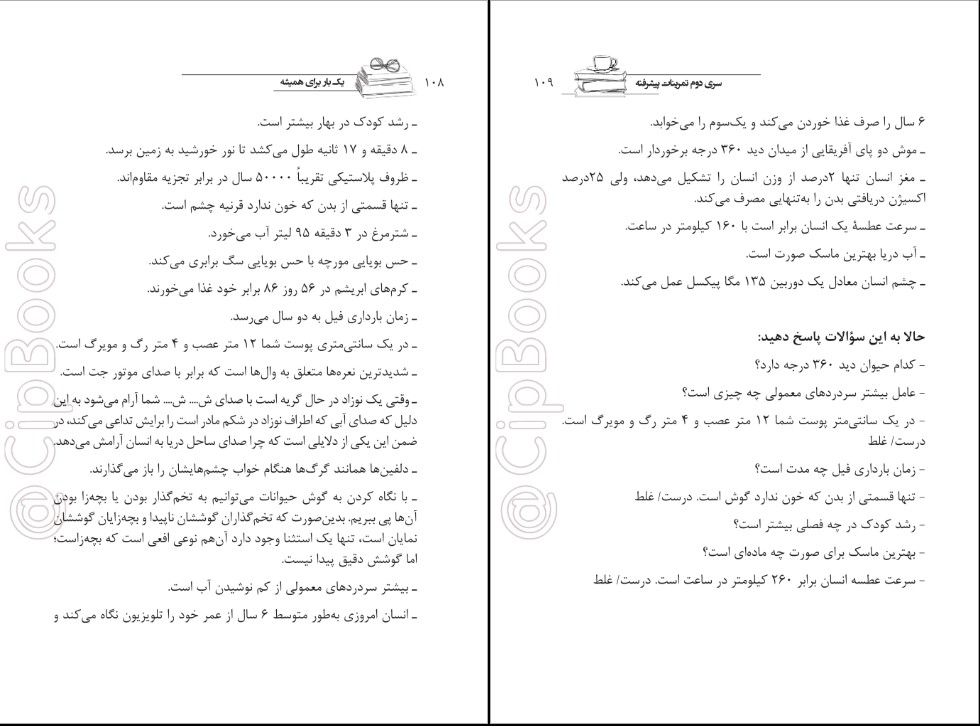 ۱۰۸
یک بار برای همیشه
ـ رشد کودک در بهار بیشتر است.
ـ ۸ دقیقه و ۱۷ ثانیه طول می‌کشد تا نور خورشید به زمین برسد.
ـ ظروف پلاستیکی تقریباً ۵۰۰۰۰ سال در برابر تجزیه مقاوم‌اند.
ـ تنها قسمتی از بدن که خون ندارد قرنیه چشم است.
ـ شترمرغ در ۳ دقیقه ۹۵ لیتر آب می‌خورد.
ـ حس بویایی مورچه با حس بویایی سگ برابری می‌کند.
ـ کرم‌های ابریشم در ۵۶ روز ۸۶ برابر خود غذا می‌خورند.
ـ زمان بارداری فیل به دو سال می‌رسد.
ـ در یک سانتی‌متری پوست شما ۱۲ متر عصب و ۴ متر رگ و مویرگ است.
ـ شدیدترین نعره‌ها متعلق به وال‌ها است که برابر با صدای موتور جت است.
ـ وقتی یک نوزاد در حال گریه است با صدای ش.... ش.... شما آرام می‌شود به این
دلیل که صدای آبی که اطراف نوزاد در شکم مادر است را برایش تداعی می‌کند، در
ضمن این یکی از دلایلی است که چرا صدای ساحل دریا به انسان آرامش می‌دهد.
ـ دلفین‌ها همانند گرگ‌ها هنگام خواب چشم‌هایشان را باز می‌گذارند.
ـ با نگاه کردن به گوش حیوانات می‌توانیم به تخم‌گذار بودن یا بچه‌زا بودن
آن‌ها پی ببریم. بدین‌صورت که تخم‌گذاران گوششان ناپیدا و بچه‌زایان گوششان
نمایان است، تنها یک استثنا وجود دارد آن‌هم نوعی افعی است که بچه‌زاست؛
اما گوشش دقیق پیدا نیست.
ـ بیشتر سردردهای معمولی از کم نوشیدن آب است.
ـ انسان امروزی به‌طور متوسط ۶ سال از عمر خود را تلویزیون نگاه می‌کند و
سری دوم تمرینات پیشرفته
۱۰۹
۶ سال را صرف غذا خوردن می‌کند و یک‌سوم را می‌خوابد.
ـ موش دو پای آفریقایی از میدان دید ۳۶۰ درجه برخوردار است.
ـ مغز انسان تنها ۲درصد از وزن انسان را تشکیل می‌دهد، ولی ۲۵درصد
اکسیژن دریافتی بدن را به‌تنهایی مصرف می‌کند.
ـ سرعت عطسهٔ یک انسان برابر است با ۱۶۰ کیلومتر در ساعت.
ـ آب دریا بهترین ماسک صورت است.
ـ چشم انسان معادل یک دوربین ۱۳۵ مگا پیکسل عمل می‌کند.
حالا به این سؤالات پاسخ دهید:
- کدام حیوان دید ۳۶۰ درجه دارد؟
- عامل بیشتر سردردهای معمولی چه چیزی است؟
- در یک سانتی‌متر پوست شما ۱۲ متر عصب و ۴ متر رگ و مویرگ است.
درست/ غلط
- زمان بارداری فیل چه مدت است؟
- تنها قسمتی از بدن که خون ندارد گوش است. درست/ غلط
- رشد کودک در چه فصلی بیشتر است؟
- بهترین ماسک برای صورت چه ماده‌ای است؟
- سرعت عطسه انسان برابر ۲۶۰ کیلومتر در ساعت است. درست/ غلط
@CipBooks
@CipBooks